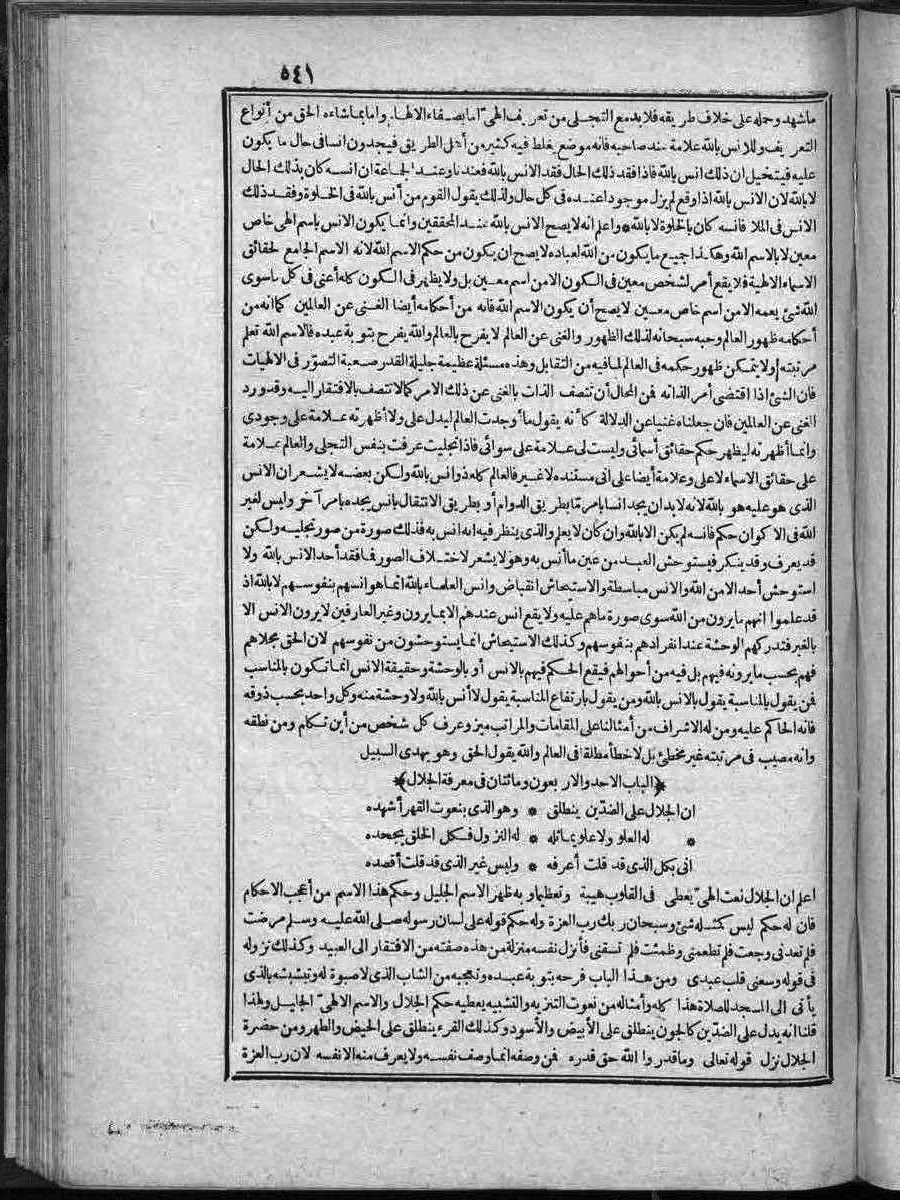 ٥٤١
ماشهد وحمله على خلاف طريقه فلا بد مع التجلى من تعريف الهىّ امابصفاء الالهام وامابماشاءه الحق من أنواع
التعريف وللانس بالله علامة عند صاحبه فانه موضع يغلط فيه كثير من أهل الطريق فيجدون انسافى حال ما يكون
عليه فيتخيل ان ذلك انس بالله فاذا فقد ذلك الحال فقد الانس بالله فعندنا وعند الجماعة ان انسه كان بذلك الحال
لا بالله لان الانس بالله اذا وقع لم يزل موجودا عنده فى كل حال ولذلك يقول القوم من أنس بالله فى الخلوة وفقد ذلك
الانس فى الملا فانسه كان بالخلوة لا بالله * واعلم انه لا يصح الانس بالله عند المحققين وانما يكون الانس باسم الهى خاص
معين لا بالاسم الله وهكذا جميع ما يكون من الله لعباده لا يصح ان يكون من حكم الاسم الله لانه الاسم الجامع لحقائق
الاسماء الالهية فلا يقع أمر لشخص معين فى الكون الا من اسم معين بل ولا يظهر فى الكون كله أعنى فى كل ماسوى
الله شئ يعمه الا من اسم خاص معين لا يصح أن يكون الاسم الله فانه من أحكامه أيضا الغنى عن العالمين كما انه من
أحكامه ظهور العالم وحبه سبحانه لذلك الظهور والغنى عن العالم لا يفرح بالعالم والله يفرح بتوبة عبده فالاسم الله تعلم
مرتبته ولا يتمكن ظهور حكمه فى العالم لما فيه من التقابل وهذه مسئلة عظيمة جليلة القدر صعبة التصوّر فى الالهيات
فان الشئ اذا اقتضى أمر الذاته فمن المحال أن تتصف الذات بالغنى عن ذلك الامر كمالا تتصف بالافتقار اليه وقد ورد
الغنى عن العالمين فان جعلناه غنيا عن الدلالة كأنه يقول ما أوجدت العالم ليدل على ولا أظهرته علامة على وجودى
وانما أظهرته ليظهر حكم حقائق أسمائى وليست لى علامة على سوائى فاذا تجليت عرفت بنفس التجلى والعالم علامة
على حقائق الاسماء لا على وعلامة أيضا على انى مستنده لا غير فالعالم كله ذو انس بالله ولكن بعضه لا يشعر ان الانس
الذى هو عليه هو بالله لانه لا بد ان يجد انسا بامر مّا بطريق الدوام أو بطريق الانتقال بانس يجده بامر آخر وليس لغير
الله فى الاكوان حكم فانسه لم يكن الا بالله وان كان لا يعلم والذى ينظر فيه انه انس به فذلك صورة من صور تجليه ولكن
قد يعرف وقد ينكر فيستوحش العبد من عين ما أنس به وهو لا يشعر لاختلاف الصور فما فقد أحد الانس بالله ولا
استوحش أحد الا من الله والانس مباسطة والاستيحاش انقباض وانس العلماء بالله انما هو انسهم بنفوسهم لا بالله اذ
قد علموا انهم ما يرون من الله سوى صورة ماهم عليه ولا يقع انس عندهم الا بما يرون وغير العارفين لا يرون الانس الا
بالغير فتدركهم الوحشة عند انفرادهم بنفوسهم وكذلك الاستيحاش انما يستوحشون من نفوسهم لان الحق مجلاهم
فهم بحسب ما يرونه فيهم بل فيه من أحوالهم فيقع الحكم فيهم بالانس أو بالوحشة وحقيقة الانس انما تكون بالمناسب
فمن يقول بالمناسبة يقول بالانس بالله ومن يقول بارتفاع المناسبة يقول لا أنس بالله ولا وحشة منه وكل واحد بحسب ذوقه
فانه الحاكم عليه ومن له الاشراف من أمثالنا على المقامات والمراتب ميز وعرف كل شخص من أين تكلم ومن نطقه
وانه مصيب فى مرتبته غير مخطئ بل لا خطأ مطلقا فى العالم والله يقول الحق وهو يهدى السبيل
﴿الباب الاحد والاربعون ومائتان فى معرفة الجلال﴾
ان الجلال على الضدّين ينطلق * وهو الذى بنعوت القهر أشهده
* له العلو ولا علو يماثله * له النزول فكل الخلق يجحده
انى بكل الذى قد قلت أعرفه * وليس غير الذى قد قلت أقصده
اعلم ان الجلال نعت الهىّ يعطى فى القلوب هيبة وتعظيما وبه ظهر الاسم الجليل وحكم هذا الاسم من أعجب الاحكام
فان له حكم ليس كمثله شئ وسبحان ربك رب العزة وله حكم قوله على لسان رسوله صلى الله عليه وسلم مرضت
فلم تعدنى وجعت فلم تطعمنى وظمئت فلم تسقنى فأنزل نفسه منزلة من هذه صفته من الافتقار الى العبيد وكذلك نزوله
فى قوله وسعنى قلب عبدى ومن هذا الباب فرحه بتوبة عبده وتعجبه من الشاب الذى لا صبوة له وتبشبشه بالذى
يأتى الى المسجد للصلاة هذا كله وأمثاله من نعوت التنزيه والتشبيه يعطيه حكم الجلال والاسم الالهىّ الجليل ولهذا
قلنا انه يدل على الضدّين كالجون ينطلق على الأبيض والأسود وكذلك القرء ينطلق على الحيض والطهر ومن حضرة
الجلال نزل قوله تعالى وما قدروا الله حق قدره فمن وصفه انما وصف نفسه ولا يعرف منه الا نفسه لان رب العزة